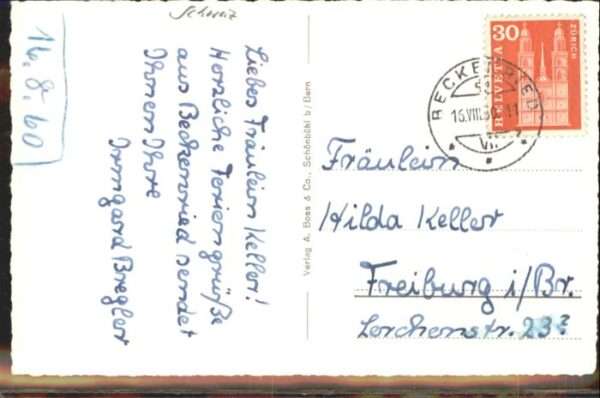 Schweiz
16.8.60
Liebes Fräulein Keller!
Herzliche Feriengrüße
aus Beckenried sendet
Ihnen Ihre
Irmgard Bregler
Verlag A. Boss & Co., Schönbühl b/Bern
30
HELVETIA
ZÜRICH
BECKENRIED
16.VIII.
Fräulein
Hilda Keller
Freiburg i/Br.
Lerchenstr. 23?